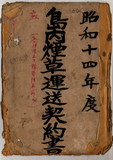 昭和十四年度
島内煙草運送契約書